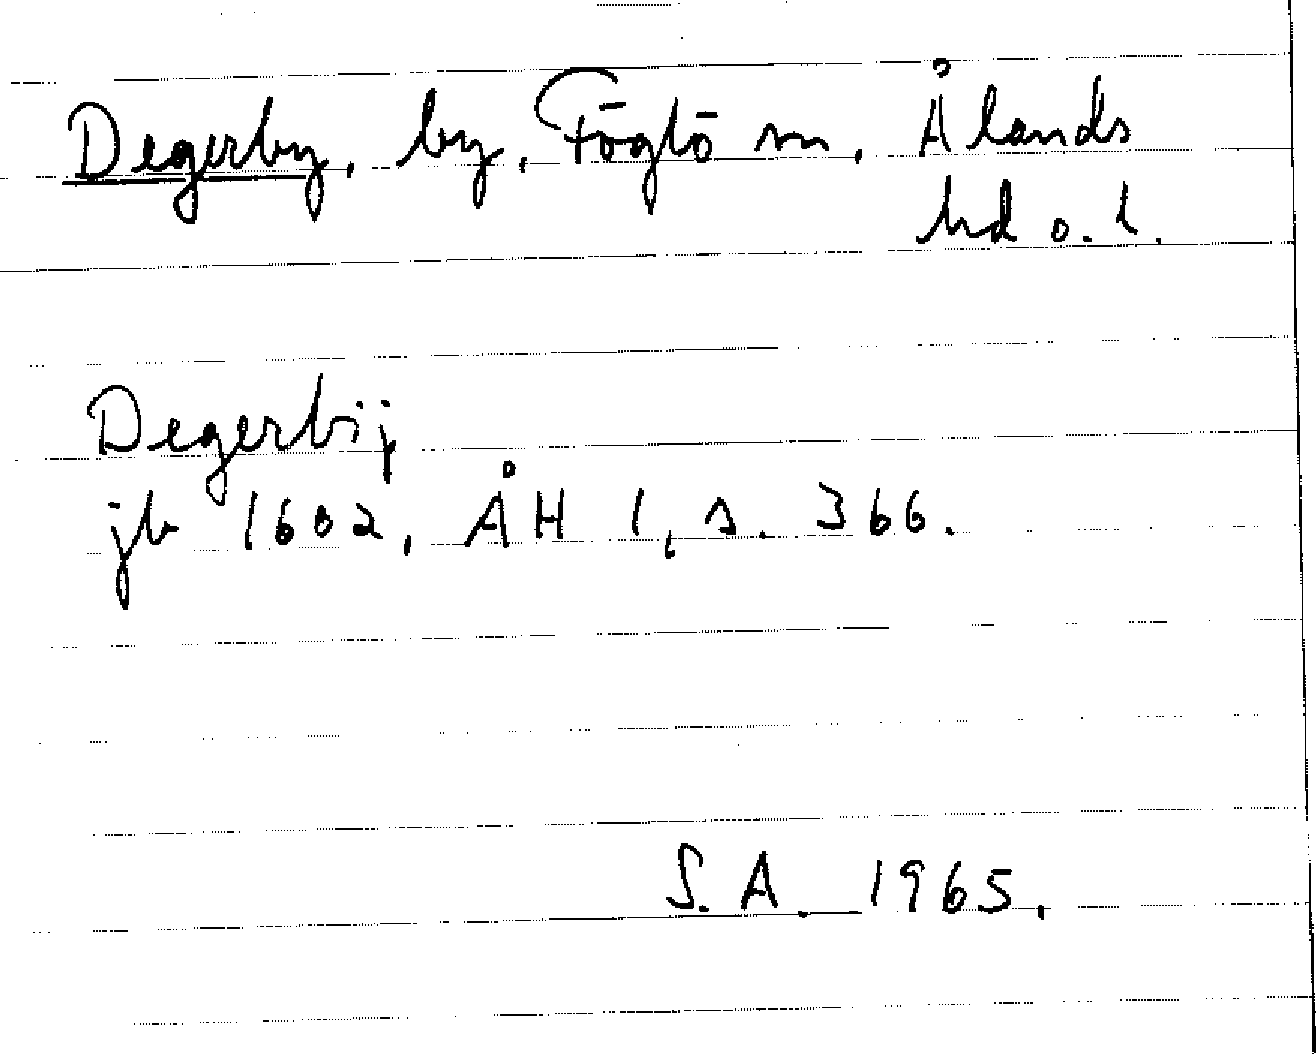 Degerby, by, Föglö sn, Ålands
hd o. l.
Degerbij
jb 1602, ÅH 1, s. 366.
S.A. 1965.